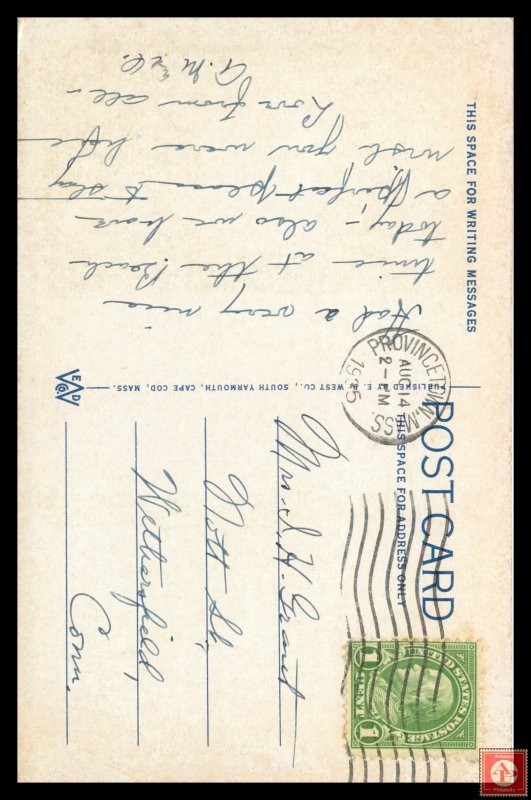 Had a very nice
time at the Beach
today, - also we have
a perfect place to stay
wish you were here
Love from all -
THIS SPACE FOR WRITING MESSAGES
PUBLISHED BY E. D. WEST CO., SOUTH YARMOUTH, CAPE COD, MASS.
POST CARD
THIS SPACE FOR ADDRESS ONLY
PROVINCETOWN, MASS.
AUG 14
2 - PM
1935
UNITED STATES POSTAGE
1 CENT 1
Mrs. I. H. Grant
Nott St,
Wethersfield,
Conn.